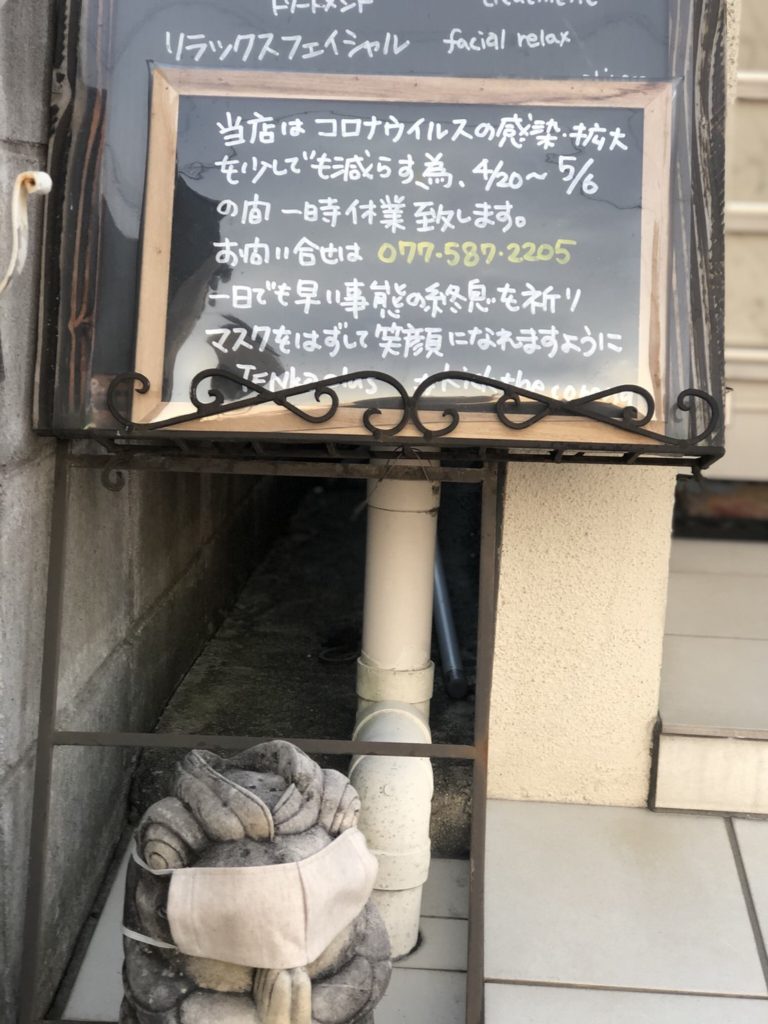 トリートメント treatment
リラックスフェイシャル facial relax
当店は コロナウイルスの感染・拡大
を少しでも減らす為、4/20〜5/6
の間 一時休業 致します。
お問い合せは 077-587-2205
一日でも早い事態の終息を祈り
マスクをはずして笑顔になれますように
the